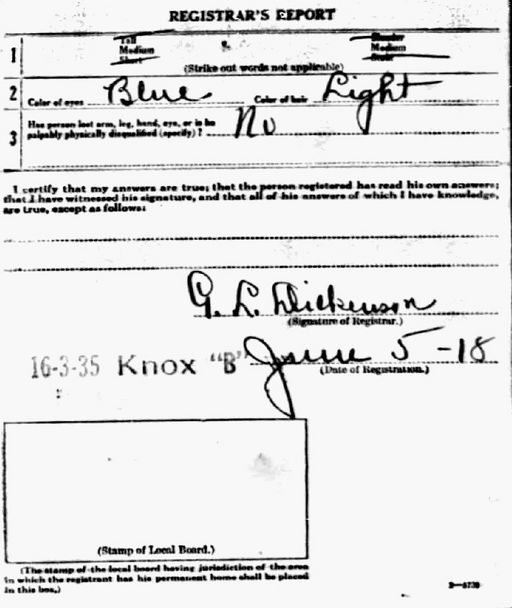 REGISTRAR'S REPORT
1 Tall Slender
Medium Medium
Short Stout
(Strike out words not applicable)
2 Color of eyes Blue Color of hair Light
3 Has person lost arm, leg, hand, eye, or is he
palpably physically disqualified (specify) ? No
I certify that my answers are true; that the person registered has read his own answers;
that I have witnessed his signature, and that all of his answers of which I have knowledge,
are true, except as follows:
G. L. Dickenson
(Signature of Registrar.)
16-3-35 Knox "B" June 5 - 18
(Date of Registration.)
(Stamp of Local Board.)
(The stamp of the local board having jurisdiction of the area
in which the registrant has his permanent home shall be placed
in this box.)